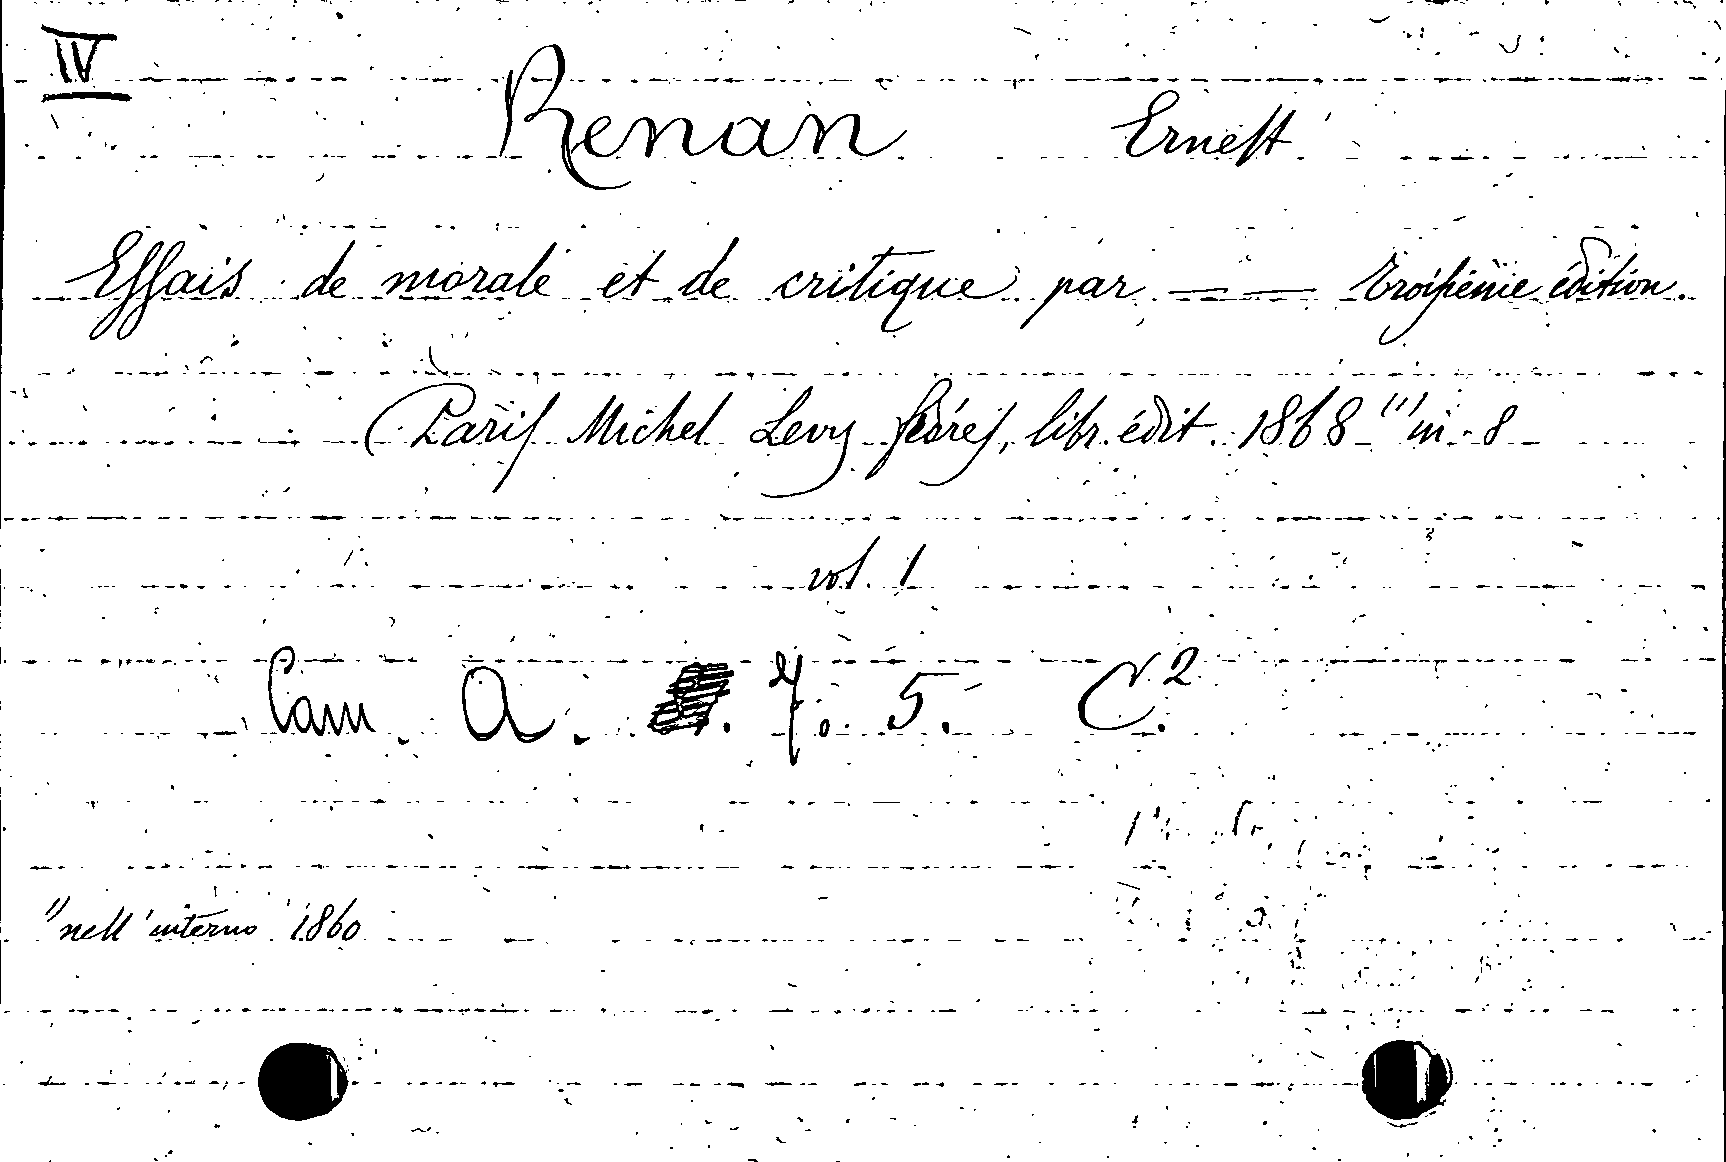 IV
Renan Ernest
Essais de morale et de critique par — — troisième édition.
Paris Michel Levy frères, libr. édit. 1868 " in-8
vol. 1
Cam. A. 7. 5. C.2
" nell'interno 1860